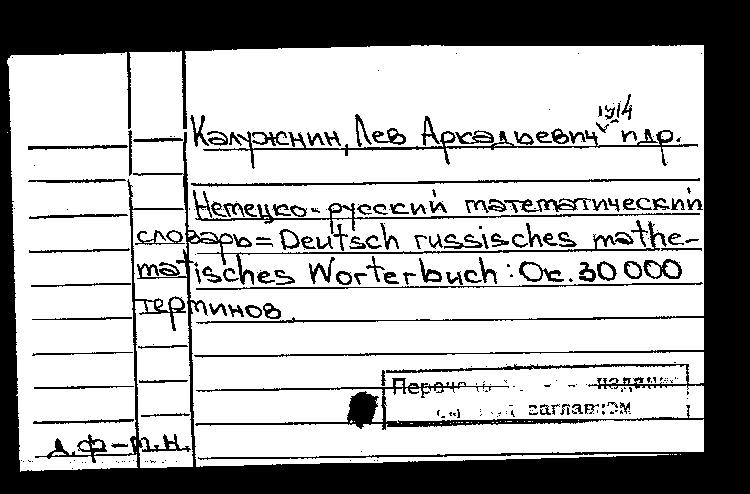 1914
Калужнин, Лев Аркадьевич пдр.
Немецко-русский математический
словарь = Deutsch russisches mathe-
matisches Worterbuch : Ок. 30 000
терминов.
издани
заглавием
д.ф-м.н.